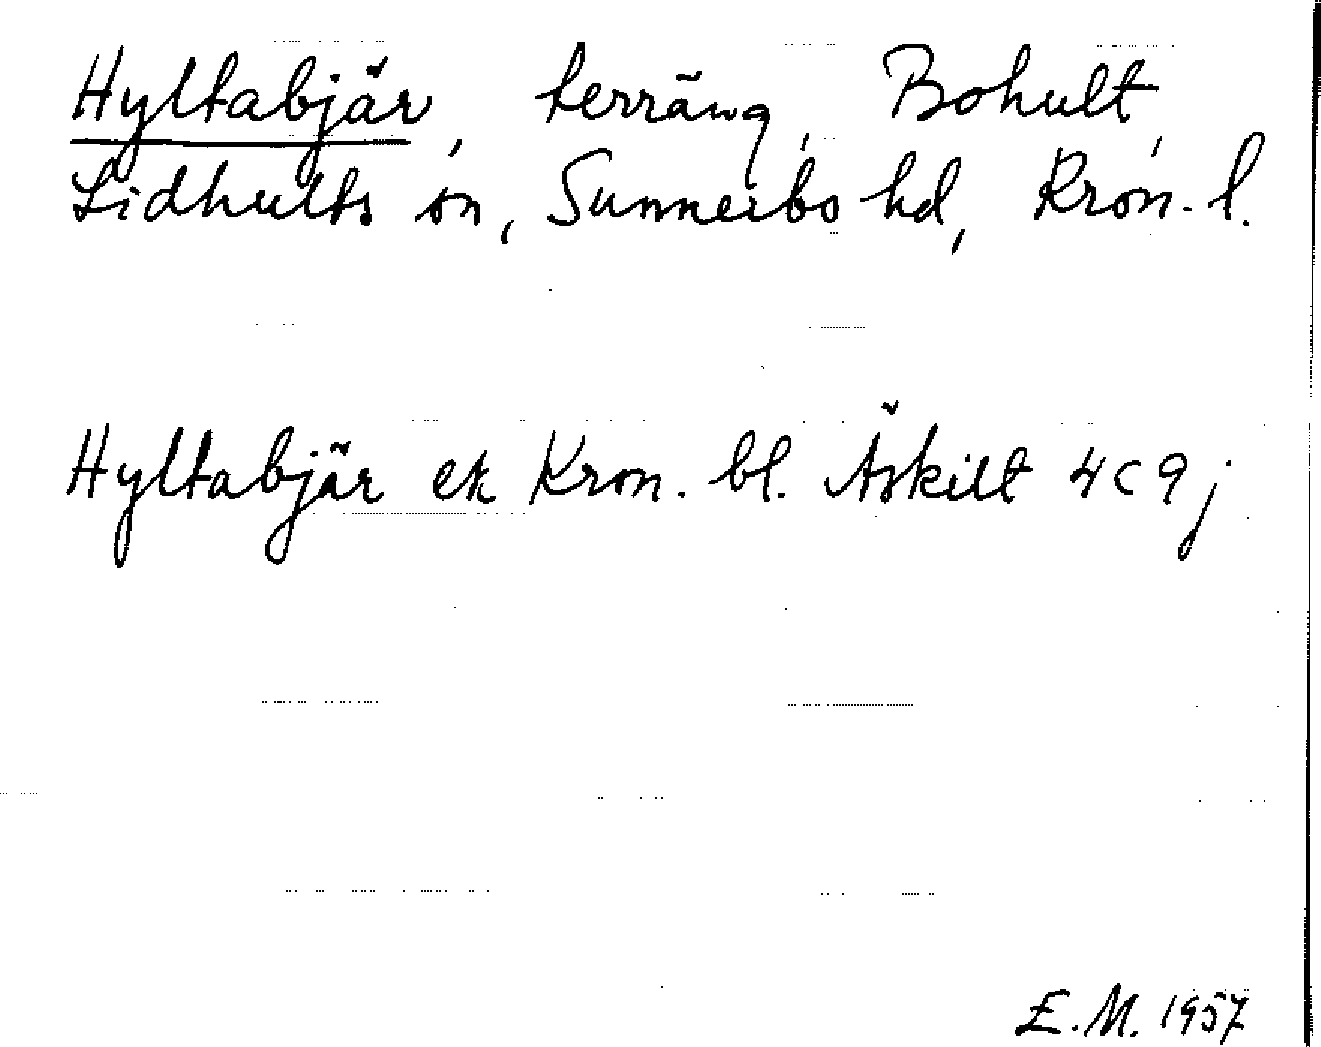 Hyltabjär, terräng, Bohult,
Lidhults sn, Sunnerbo hd, Kron. l.
Hyltabjär ek Kron. bl. Äskilt 4C9j
E.M. 1957